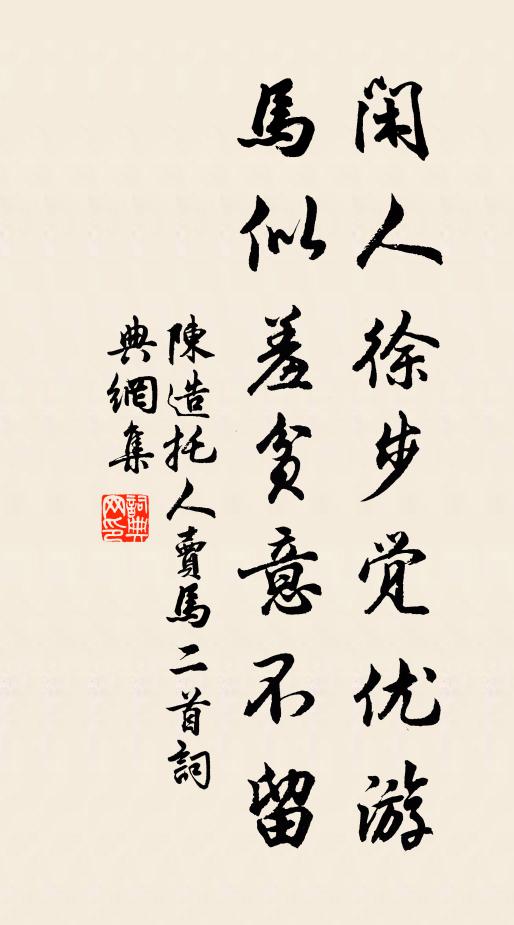 闲人徐步觉优游
馬似羞貧意不留
陳造托人賣馬二首詞
典網集
詞典网印